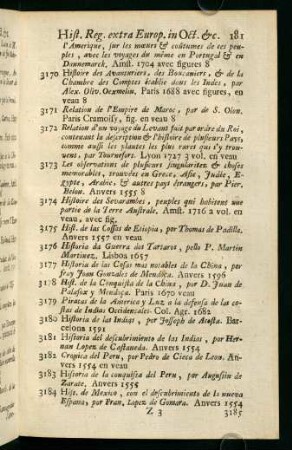 Hist. Reg. extra Europ. in Oct. &c. 181
l'Amerique, sur les mœurs & coûtumes de ces peu-
ples, avec les voyages du même en Portugal & en
Dennemarck. Amst. 1704 avec figures 8
3170 Histoire des Avanturiers, des Boucaniers, & de la
Chambre des Comptes établie dans les Indes, par
Alex. Oliv. Oexmelin. Paris 1688 avec figures, en
veau 8
3171 Relation de l'Empire de Maroc, par de S. Olon.
Paris Cramoisy, fig. en veau 8
3172 Relation d'un voyage du Levant fait par ordre du Roi,
contenant la description & l'histoire de plusieurs Pays,
comme aussi les plantes les plus rares qui s'y trou-
vent, par Tournefort. Lyon 1727 3 vol. en veau
3173 Les observations de plusieurs singularitez & choses
memorables, trouvées en Grece, Asie, Judée, E-
gypte, Arabie, & autres pays étrangers, par Pier.
Belon. Anvers 1555 8
3174 Histoire des Sevarambes, peuples qui habitent une
partie de la Terre Australe. Amst. 1716 2 vol. en
veau, avec fig.
3175 Hist. de las Cosas de Etiopia, por Thomas de Padilla.
Anvers 1557 en veau
3176 Historia da Guerra dos Tartaros, pello P. Martin
Martinez. Lisboa 1657
3177 Historia de las Cosas mas notables de la China, por
fray Joan Gonzalez de Mendoça. Anvers 1596
3178 Hist. de la Conquista de la China, por D. Juan de
Palafox y Mendoça. Paris 1670 veau
3179 Piratas de la America y Luz a la defensa de las co-
stas de Indias Occidentales. Col. Agr. 1682
3180 Historia de las Indias, por Joseph de Acosta. Bar-
celona 1591
3181 Historia del descubrimiento de las Indias, por Her-
nan Lopez de Castaneda. Anvers 1554
3182 Cronica del Peru, por Pedro de Cieca de Leon. An-
vers 1554 en veau
3183 Historia de la conquista del Peru, por Augustin de
Zarate. Anvers 1555
3184 Hist. de Mexico, con el descubrimiento de la nueva
Espana, por Fran. Lopez de Gomara. Anvers 1554
Z 3 3185